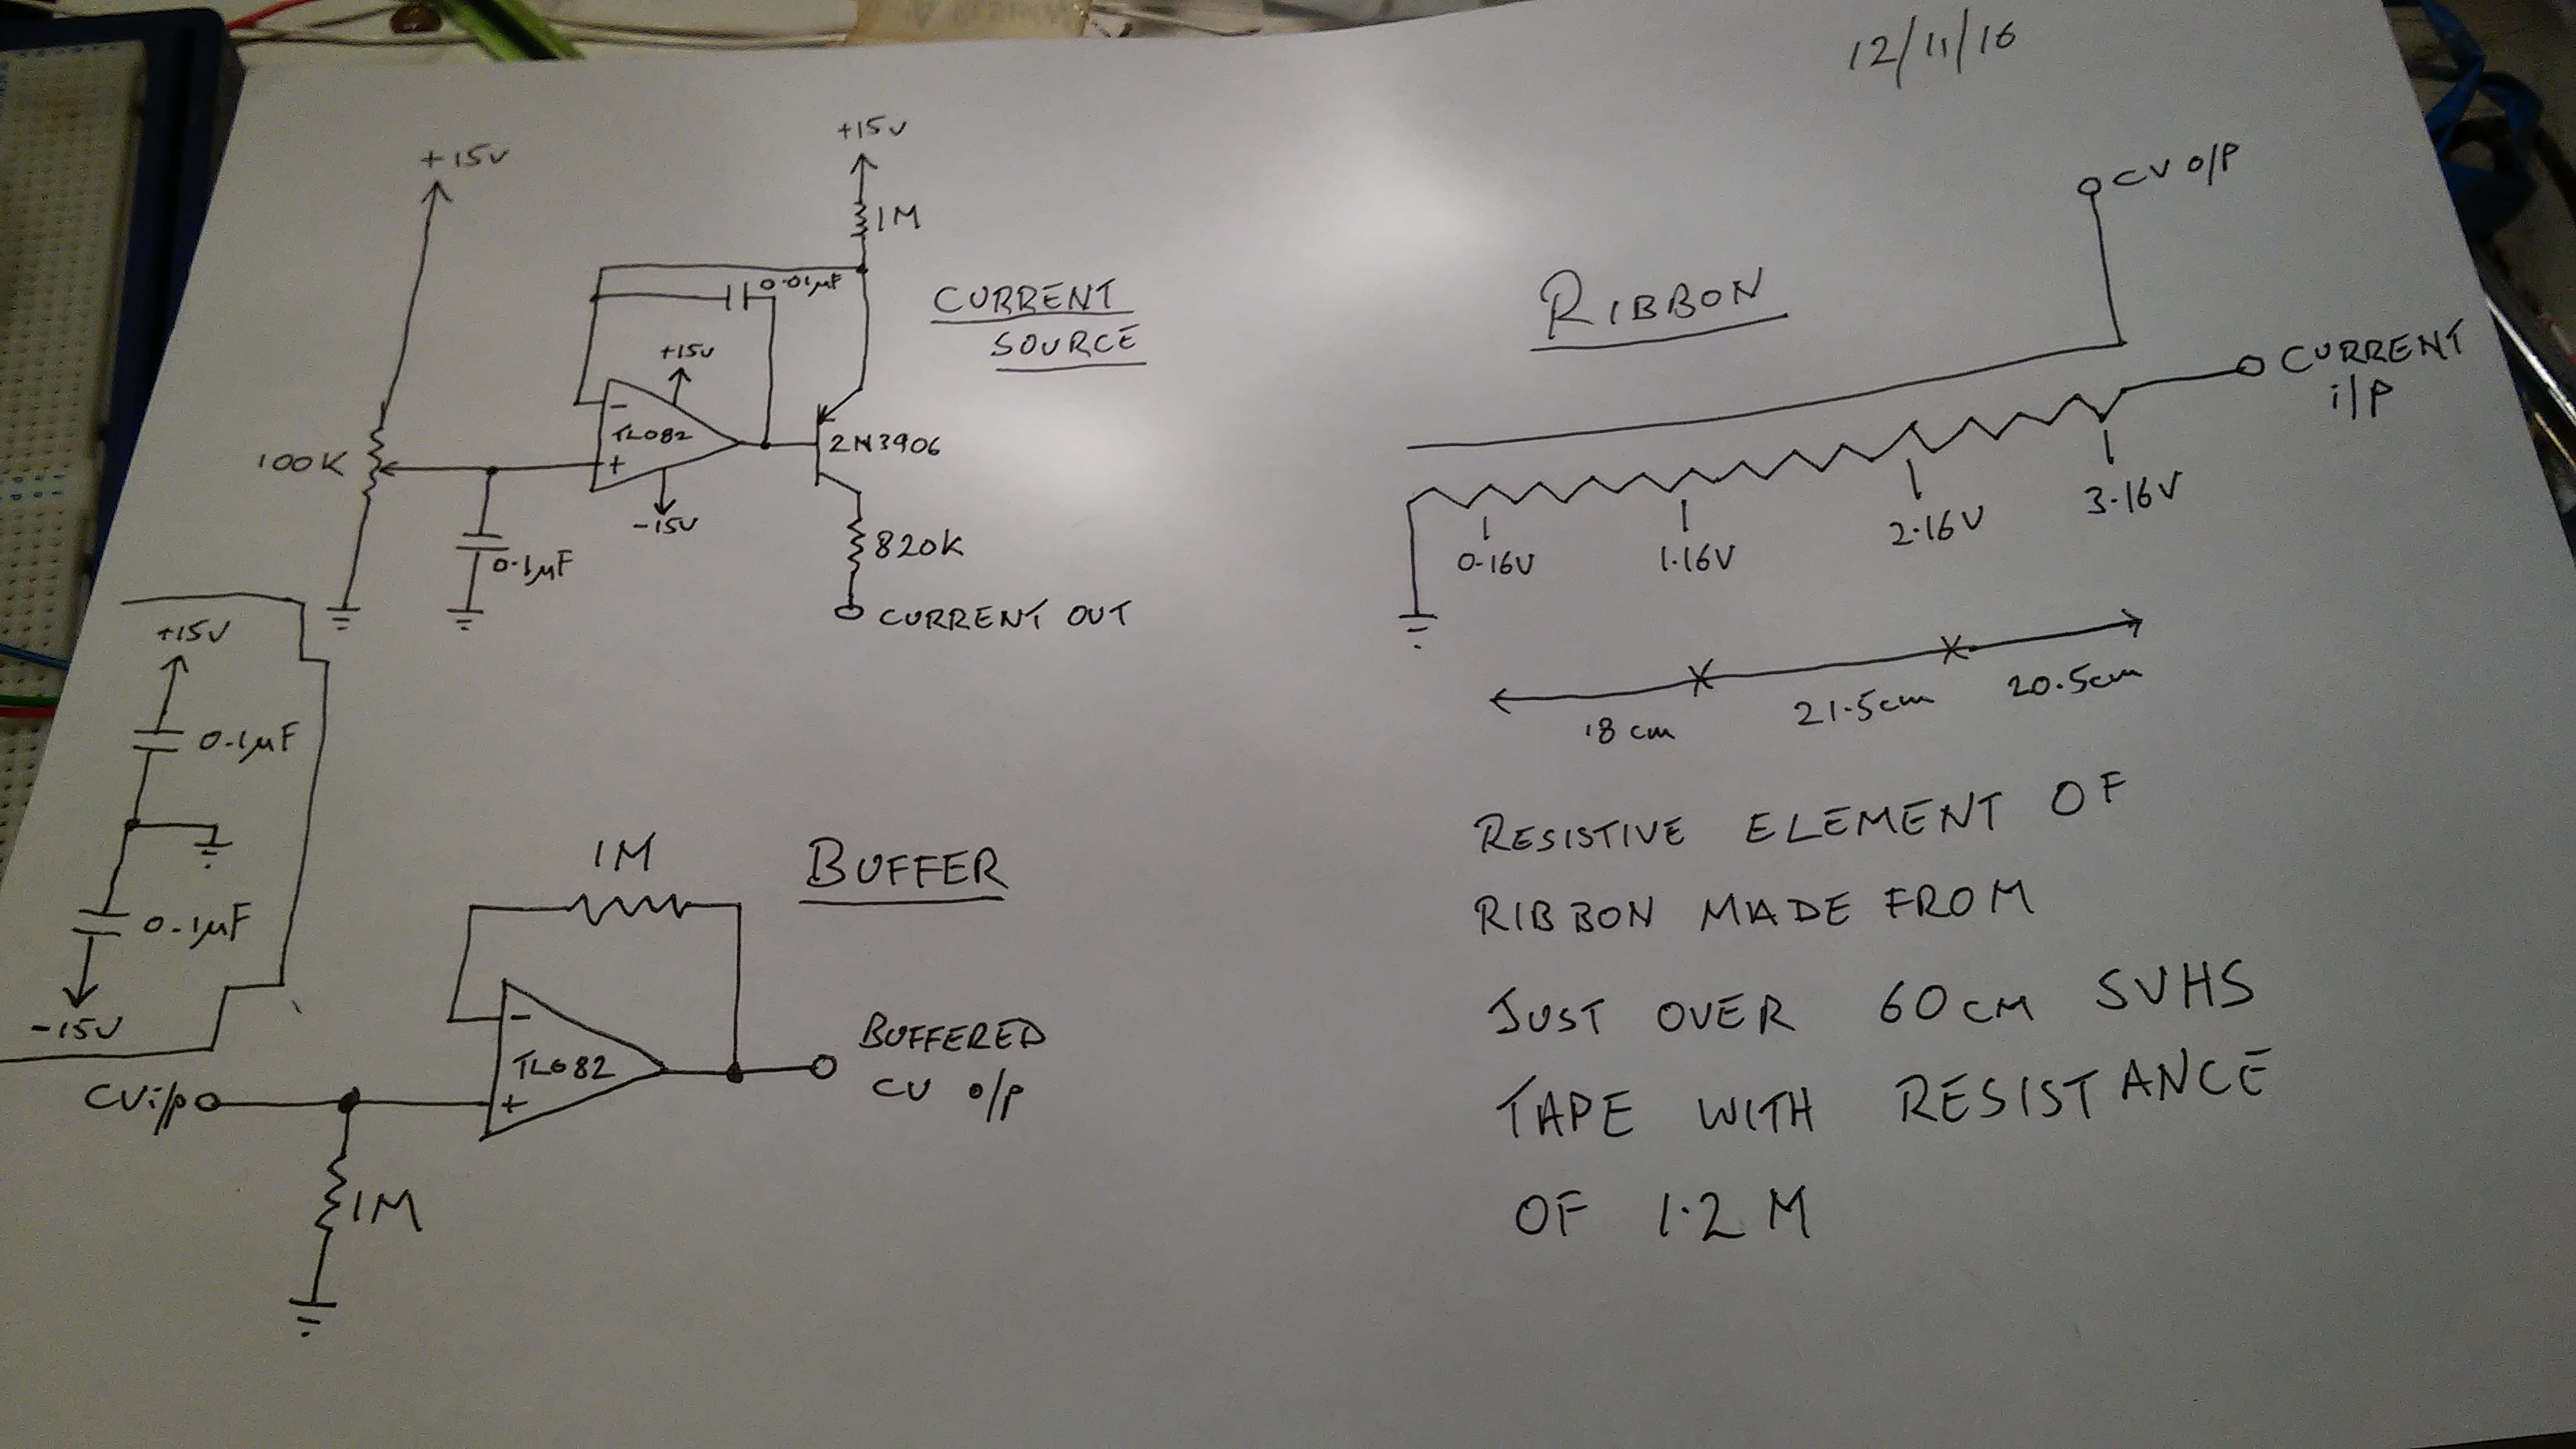 12/11/16
+15V
100K
0.1µF
+15V
1M
0.01µF
+15V
-
TL082
+
-15V
2N3906
820K
CURRENT OUT
CURRENT
SOURCE
+15V
0.1µF
0.1µF
-15V
BUFFER
1M
-
TL082
+
CV i/p
1M
BUFFERED
CV o/p
RIBBON
CV O/P
CURRENT
i/P
0.16V
1.16V
2.16V
3.16V
18cm
21.5cm
20.5cm
RESISTIVE ELEMENT OF
RIBBON MADE FROM
JUST OVER 60cm SVHS
TAPE WITH RESISTANCE
OF 1.2 M